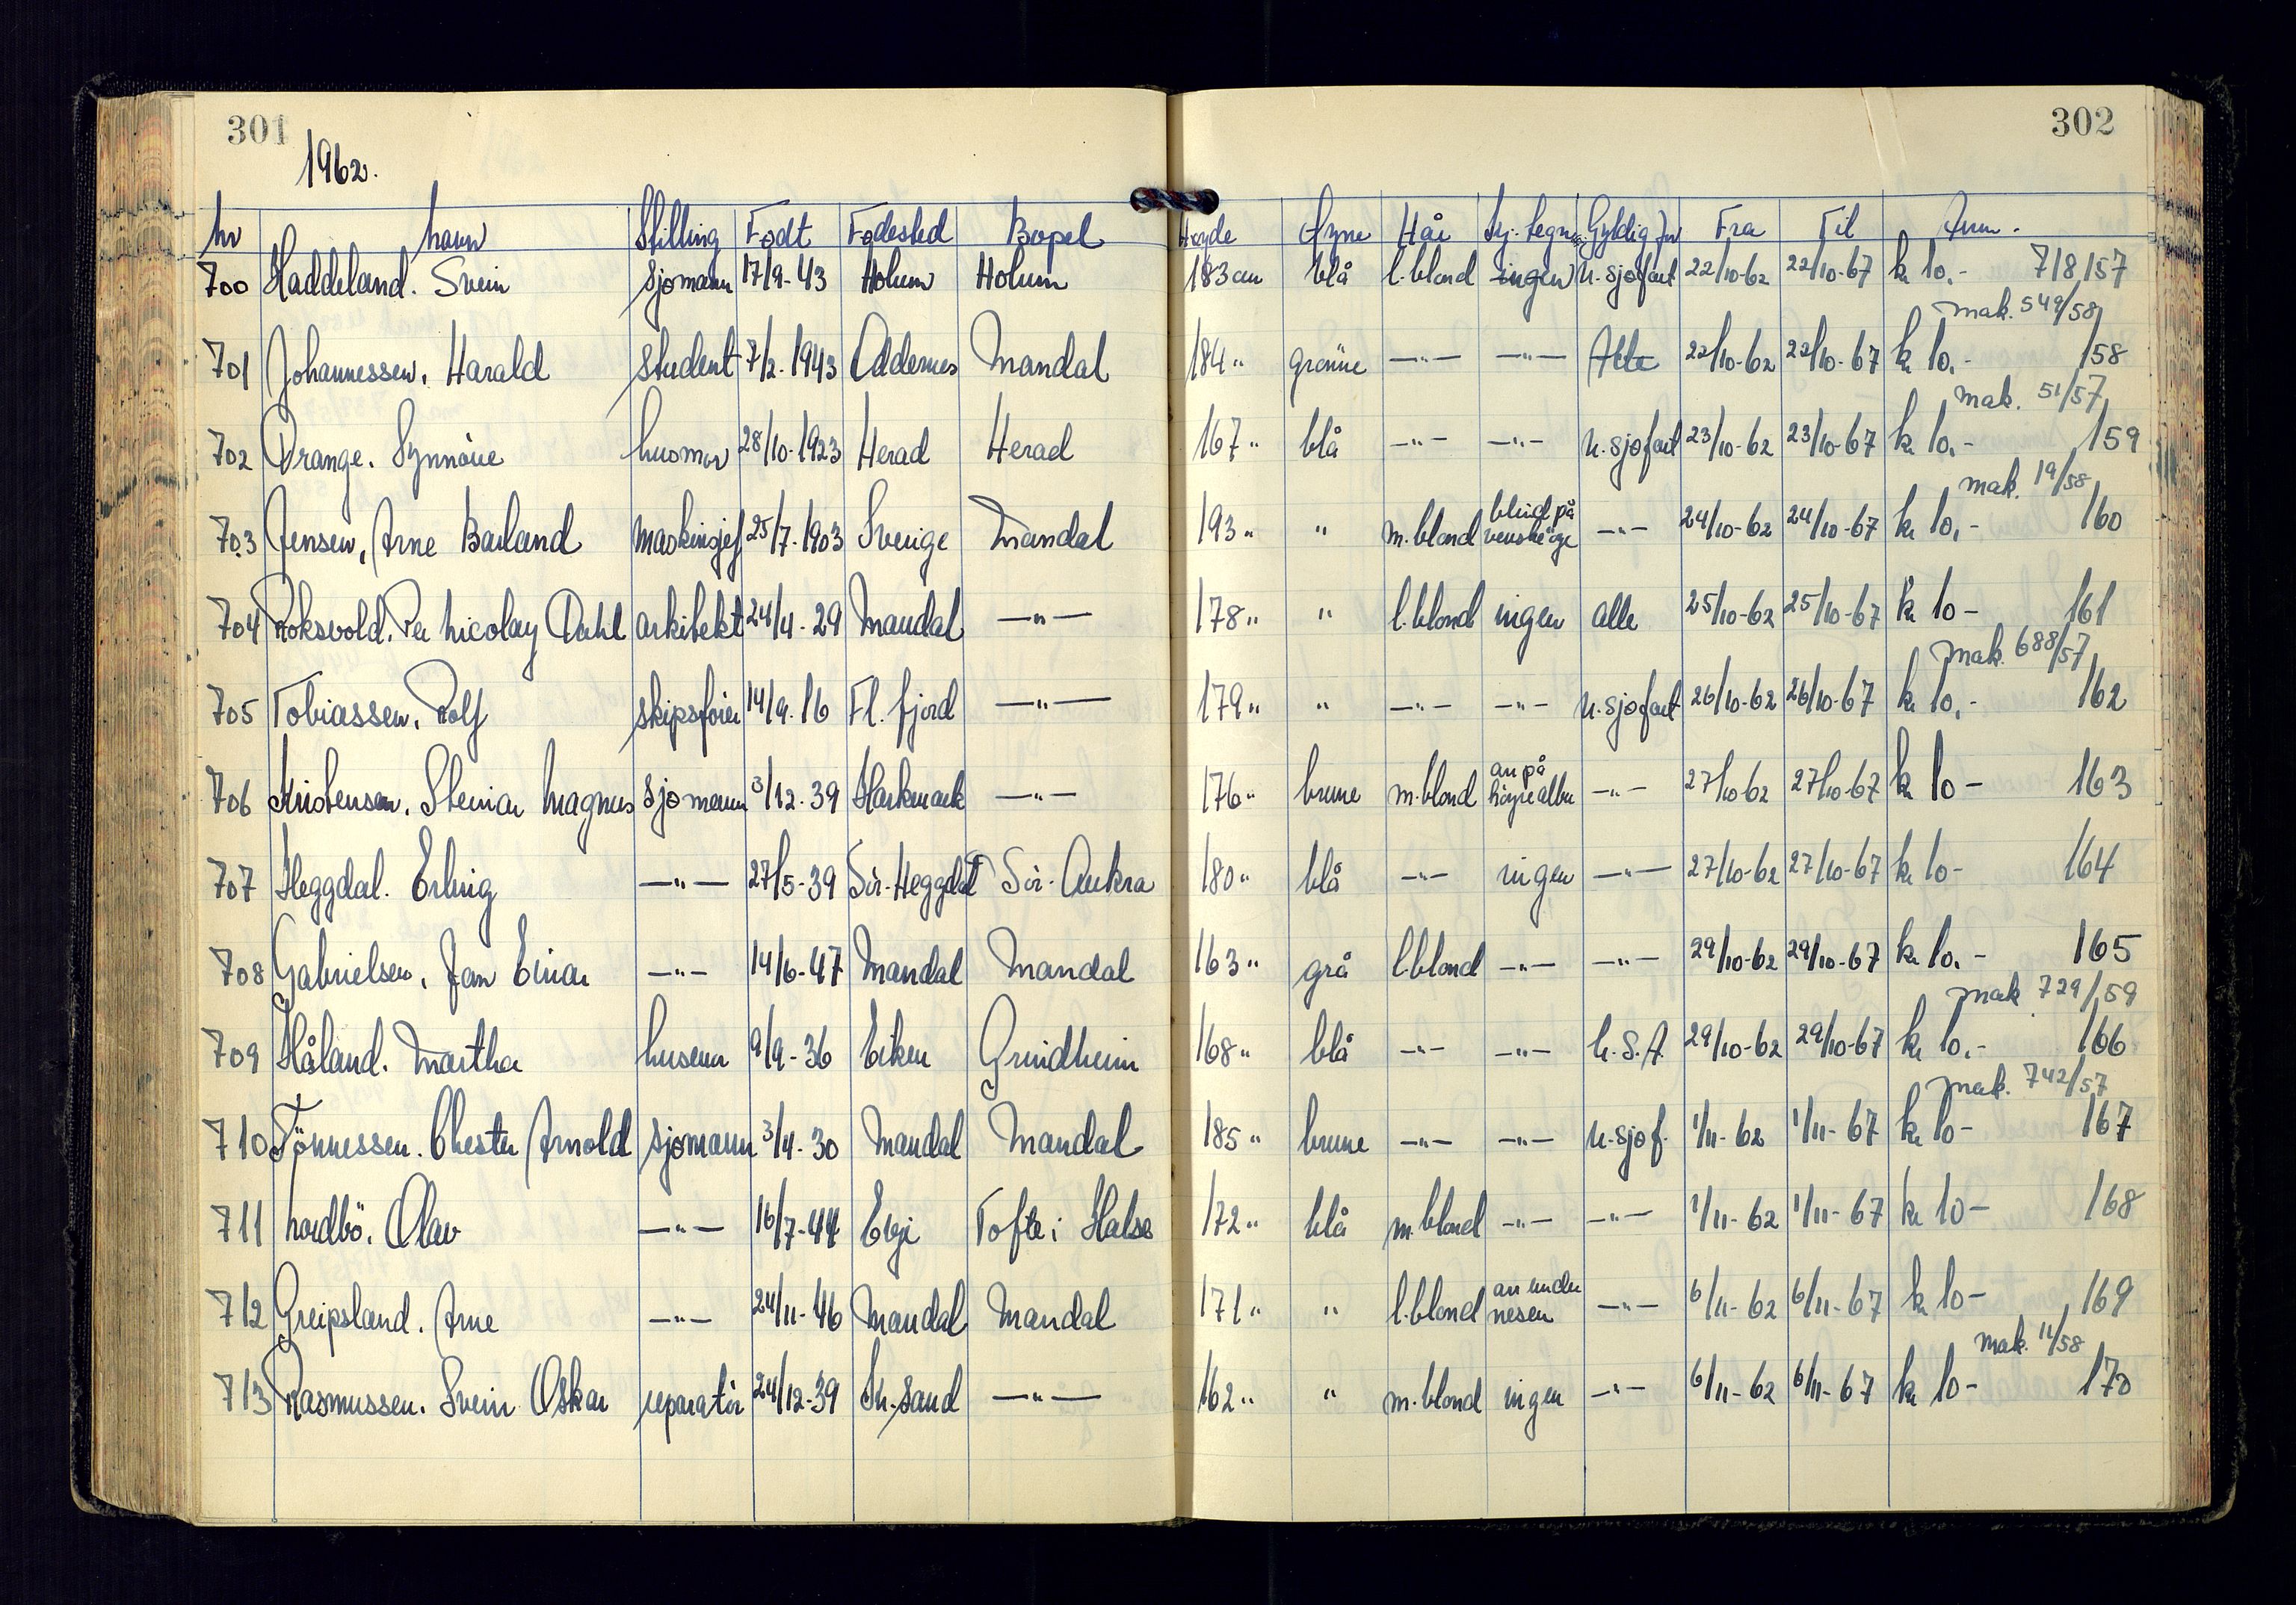 301
302
1962.
Nr Navn Stilling Født Fødested Bopel Høyde Øyne Hår Sj. tegn Gyldig for Fra Til Anm.
700 Haddeland. Svein sjømann 17/9-43 Holum Holum 183 cm blå l.blond ingen u.sjøfart 22/10-62 22/10-67 kr 10.- 718/57
mak. 549/58
701 Johannessen, Harald student 7/2-1943 Oddernes Mandal 184 " grønne —"— —"— Alle 22/10-62 22/10-67 kr 10.- 158
mak. 51/57
702 Drange. Synnöve husmor 28/10-1923 Herad Herad 167 " blå —"— —"— u.sjøfart 23/10-62 23/10-67 kr 10.- 159
mak. 19/58
703 Jensen, Arne Barland maskinsjef 25/7-1903 Sverige Mandal 193 " " m.blond blind på venstre øye —"— 24/10-62 24/10-67 kr 10,- 160
704 Roksvold. Per Nicolay Dahl arkitekt 24/4-29 Mandal —"— 178 " " l.blond ingen alle 25/10-62 25/10-67 kr 10- 161
mak. 688/57
705 Tobiassen. Rolf skipsfører 14/9-16 Fl. fjord —"— 179 " " —"— —"— u.sjøfart 26/10-62 26/10-67 kr 10,- 162
706 Kristensen. Steinar Magnus sjømann 3/12-39 Harkmark —"— 176 " brune m.blond arr på høyre albu —"— 27/10-62 27/10-67 kr 10- 163
707 Heggdal. Erling —"— 27/5-39 Sör-Heggdal Sör-Aukra 180 " blå —"— ingen —"— 27/10-62 27/10-67 kr 10- 164
708 Gabrielsen, Jan Einar —"— 14/6-47 Mandal Mandal 163 " grå l.blond —"— —"— 29/10-62 29/10-67 kr 10.- 165
mak 729/59
709 Håland. Martha husmor 9/9-36 Eiken Grindheim 168 " blå —"— —"— U.S.A. 29/10-62 29/10-67 kr 10.- 166
mak. 742/57
710 Tönnessen. Chester Arnold sjømann 3/4-30 Mandal Mandal 185 " brune —"— —"— u.sjøf. 1/11-62 1/11-67 kr 10- 167
711 Nordbö. Olav —"— 16/7-44 Evje Tofte i Halse 172 " blå m.blond —"— —"— 1/11-62 1/11-67 kr 10- 168
712 Greipsland. Arne —"— 24/11-46 Mandal Mandal 171 " " l.blond arr under nesen —"— 6/11-62 6/11-67 kr 10- 169
mak. 11/58
713 Rasmussen. Svein Oskar reparatör 24/12-39 Kr.sand —"— 162 " " m.blond ingen —"— 6/11-62 6/11-67 kr 10- 170